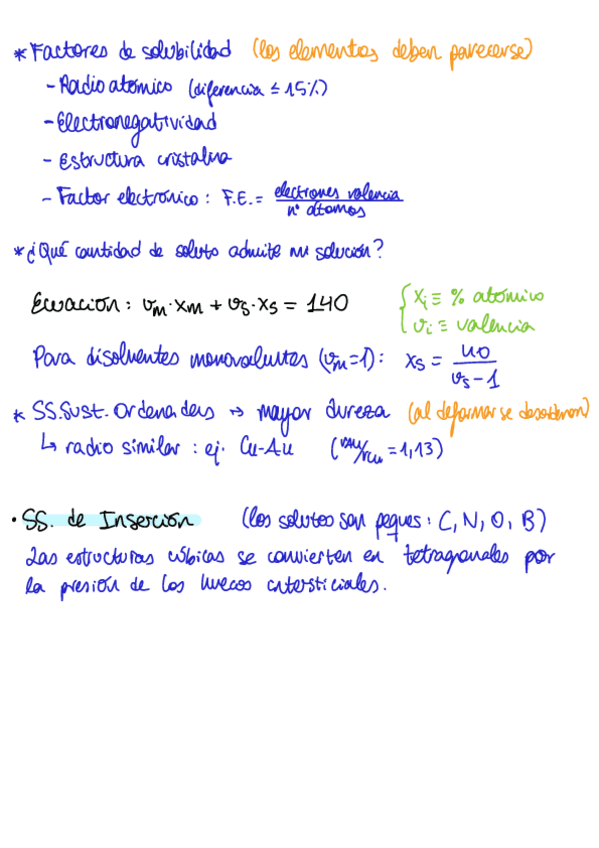 * Factores de solubilidad (los elementos deben parecerse)
- Radio atómico (diferencia ≤ 15%)
- Electronegatividad
- Estructura cristalina
- Factor electrónico: F.E. = electrones valencia / nº átomos
* ¿Qué cantidad de soluto admite mi solución?
Ecuación: vm·xm + vs·xs = 140 { xi ≡ % atómico
vi ≡ valencia
Para disolventes monovalentes (vm=1): xs = 40 / vs - 1
* SS. Sust. Ordenadas → mayor dureza (al deformar se desordenan)
↳ radio similar: ej. Cu-Au (rAu/rCu = 1,13)
· SS. de Inserción (los solutos son peques: C, N, O, B)
Las estructuras cúbicas se convierten en tetragonales por
la presión de los huecos intersticiales.